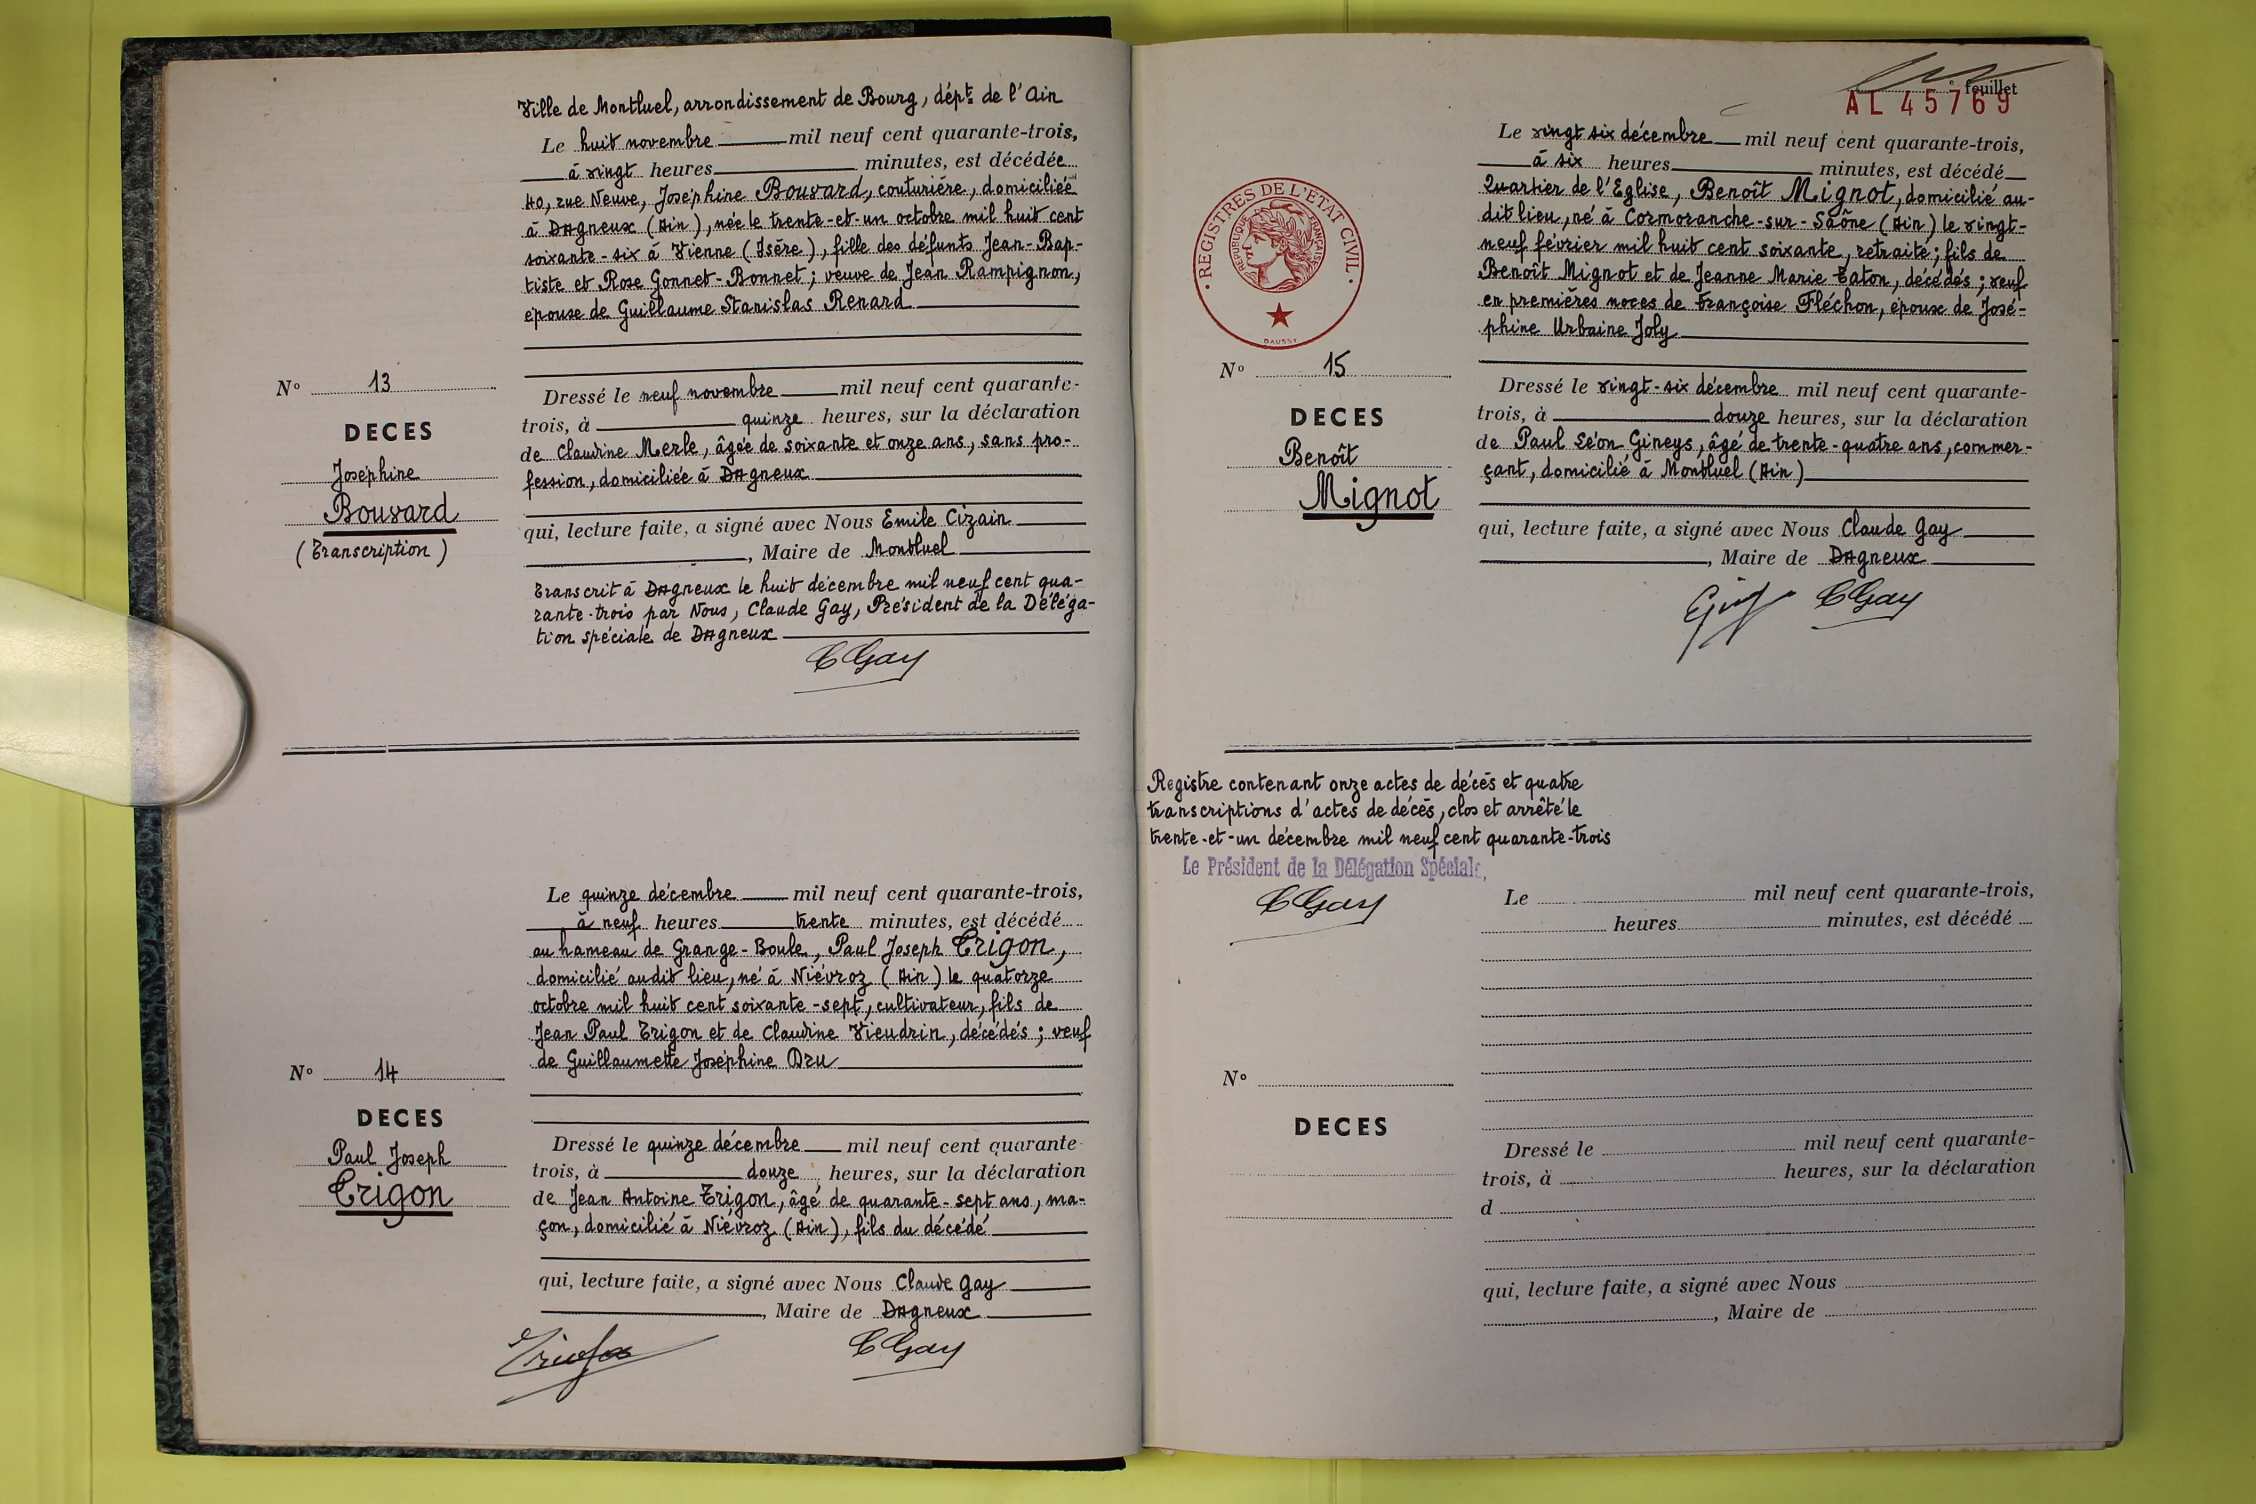 Ville de Montluel, arrondissement de Bourg, dépt de l'Ain
Le huit novembre mil neuf cent quarante-trois,
à vingt heures minutes, est décédée
40, rue Neuve, Joséphine Bouvard, couturière, domiciliée
à Dagneux (Ain), née le trente-et-un octobre mil huit cent
soixante-six à Vienne (Isère), fille des défunts Jean-Bap-
tiste et Rose Gonnet-Bonnet; veuve de Jean Rampignon,
épouse de Guillaume Stanislas Renard
No 13
DECES
Joséphine
Bouvard
(Transcription)
Dressé le neuf novembre mil neuf cent quarante-
trois, à quinze heures, sur la déclaration
de Claudine Merle, âgée de soixante et onze ans, sans pro-
fession, domiciliée à Dagneux
qui, lecture faite, a signé avec Nous Emile Cizain
, Maire de Montluel
Transcrit à Dagneux le huit décembre mil neuf cent qua-
rante-trois par Nous, Claude Gay, Président de la Déléga-
tion spéciale de Dagneux
C Gay
Le quinze décembre mil neuf cent quarante-trois,
à neuf heures trente minutes, est décédé
au hameau de Grange-Boule, Paul Joseph Trigon,
domicilié audit lieu, né à Niévroz (Ain) le quatorze
octobre mil huit cent soixante-sept, cultivateur, fils de
Jean Paul Trigon et de Claudine Vieudrin, décédés; veuf
de Guillaumette Joséphine Dru
No 14
DECES
Paul Joseph
Trigon
Dressé le quinze décembre mil neuf cent quarante
trois, à douze heures, sur la déclaration
de Jean Antoine Trigon, âgé de quarante-sept ans, ma-
çon, domicilié à Niévroz (Ain), fils du décédé
qui, lecture faite, a signé avec Nous Claude Gay
, Maire de Dagneux
C Gay
feuillet
AL 45769
REGISTRES DE L'ETAT CIVIL
REPUBLIQUE FRANÇAISE
DAUSSY
Le vingt six décembre mil neuf cent quarante-trois,
à six heures minutes, est décédé
Quartier de l'Eglise, Benoît Mignot, domicilié au-
dit lieu, né à Cormoranche-sur-Saône (Ain) le vingt-
neuf février mil huit cent soixante, retraité; fils de
Benoît Mignot et de Jeanne Marie Taton, décédés; veuf
en premières noces de Françoise Fléchon, époux de José-
phine Urbaine Joly
No 15
DECES
Benoît
Mignot
Dressé le vingt-six décembre mil neuf cent quarante-
trois, à douze heures, sur la déclaration
de Paul Léon Gineys, âgé de trente-quatre ans, commer-
çant, domicilié à Montluel (Ain)
qui, lecture faite, a signé avec Nous Claude Gay
, Maire de Dagneux
C Gay
Registre contenant onze actes de décès et quatre
transcriptions d'actes de décès, clos et arrêté le
trente-et-un décembre mil neuf cent quarante-trois
Le Président de la Délégation Spéciale,
C Gay
Le mil neuf cent quarante-trois,
heures minutes, est décédé
No
DECES
Dressé le mil neuf cent quarante-
trois, à heures, sur la déclaration
d
qui, lecture faite, a signé avec Nous
, Maire de